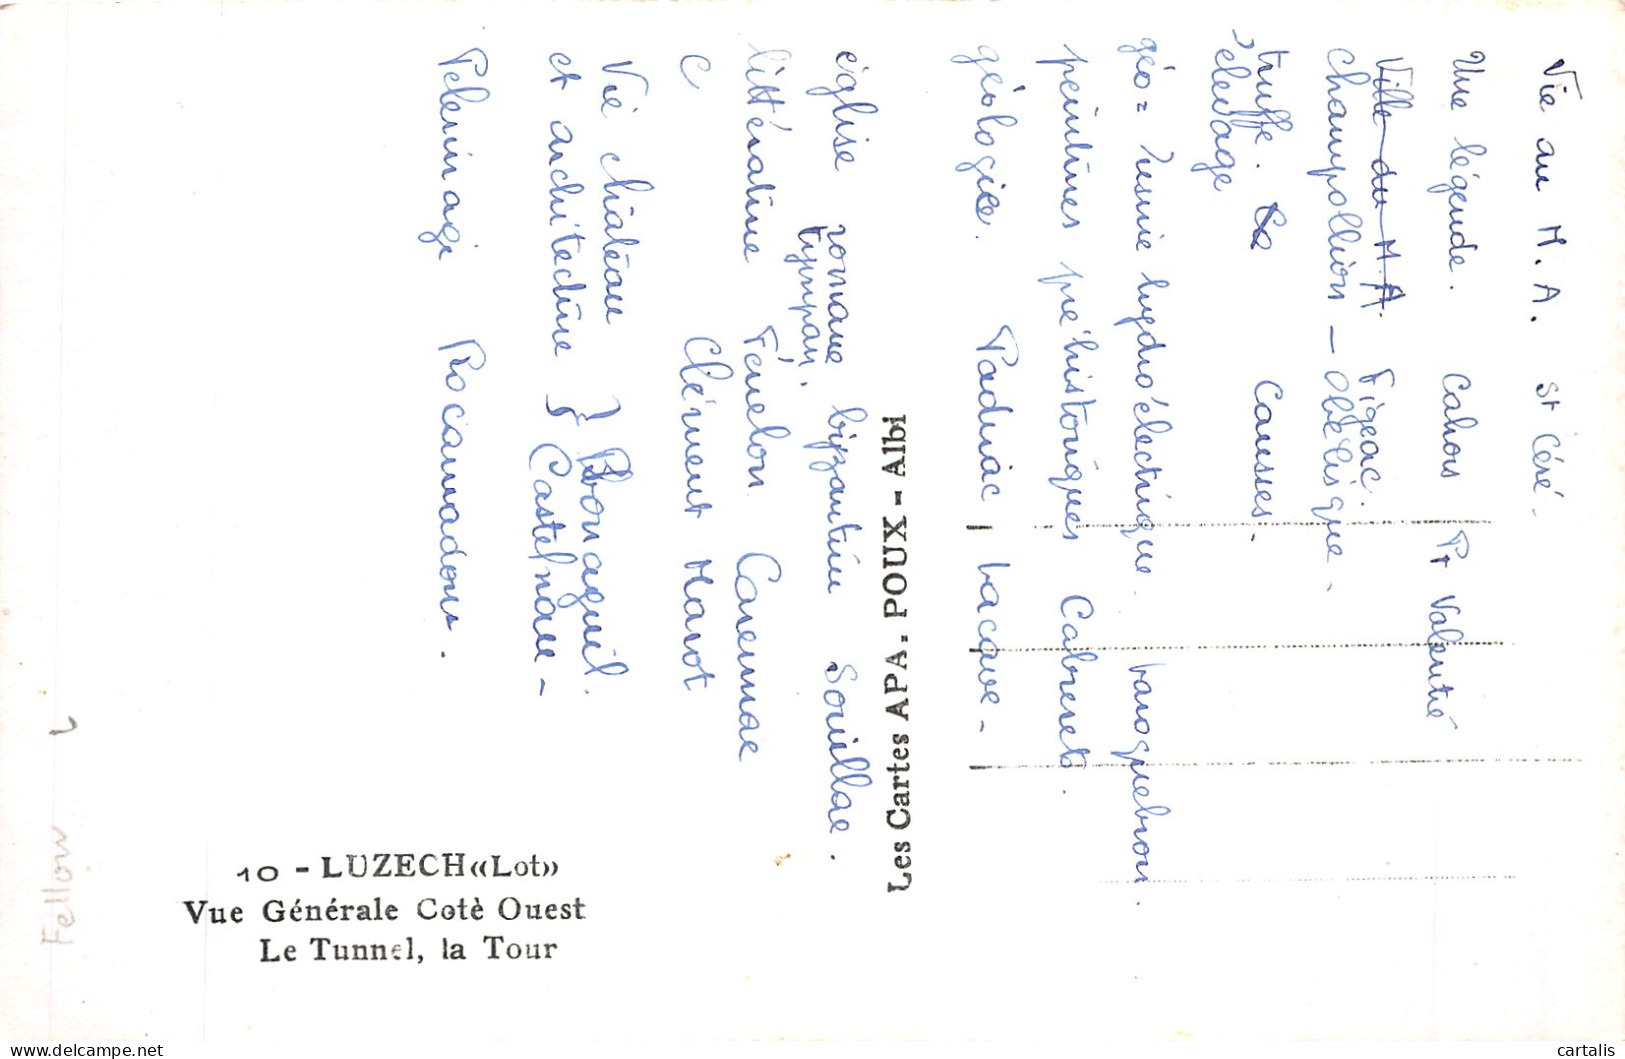 Vie au M.A. St Céré.
Une légende. Cahors Pt Valentré
Ville du M.A. Figeac.
Champollion - Obélisque -
truffe. Causses.
élevage
géo = usine hydroélectrique.
peintures préhistoriques Cabrerets.
géologie. Padirac Lacave -
église romane byzantin Souillac.
tympan.
littérature Fénelon Carennac
C Clément Marot
Vie château } Bonaguil.
et architecture } Castelnau -
Pelerinage Rocamadour.
Les Cartes APA. POUX - Albi
10 - LUZECH «Lot»
Vue Générale Cotè Ouest
Le Tunnel, la Tour
cartalis